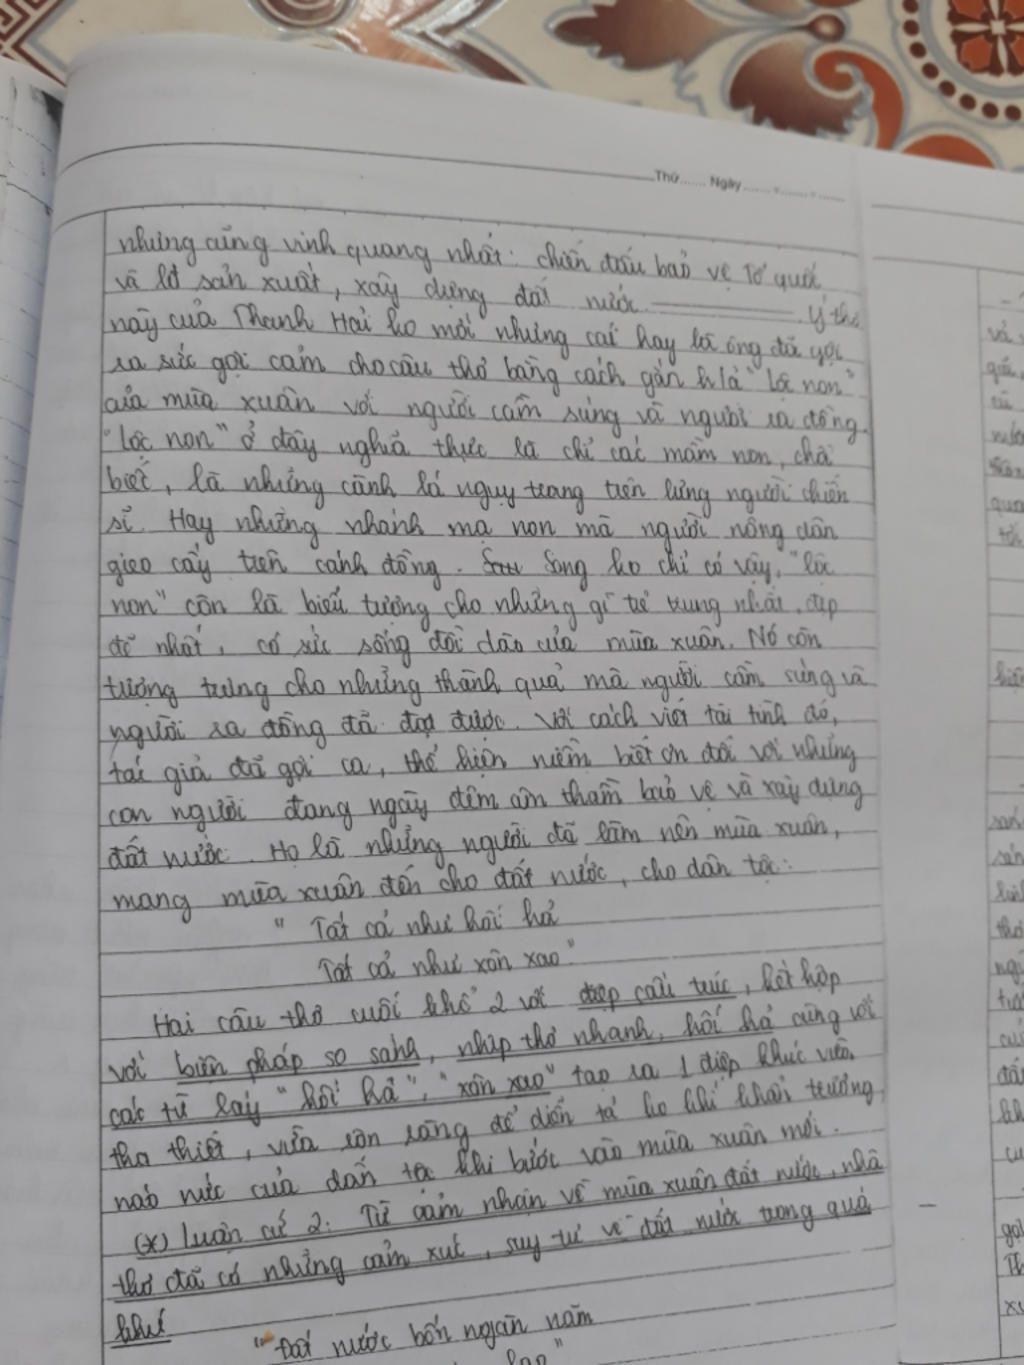 Thứ...... Ngày
những cũng vinh quang nhất: chiến đấu bảo vệ Tổ quốc
và lđ sản xuất, xây dựng đất nước. Ý thơ
này của Thanh Hải ko mới nhưng cái hay là ông đã gợi
ra sức gợi cảm cho câu thơ bằng cách gắn h/a "lộc non"
của mùa xuân với người cầm súng và người ra đồng.
"Lộc non" ở đây nghĩa thực là chỉ các mầm non, chồi
biếc, là những cành lá ngụy trang trên lưng người chiến
sĩ. Hay những nhánh mạ non mà người nông dân
gieo cấy trên cánh đồng. Song ko chỉ có vậy, "lộc
non" còn là biểu tượng cho những gì trẻ trung nhất, đẹp
đẽ nhất, có sức sống dồi dào của mùa xuân. Nó còn
tượng trưng cho những thành quả mà người cầm súng và
người ra đồng đã đạt được. Với cách viết tài tình đó,
tác giả đã gợi ca, thể hiện niềm biết ơn đối với những
con người đang ngày đêm âm thầm bảo vệ và xây dựng
đất nước. Họ là những người đã làm nên mùa xuân,
mang mùa xuân đến cho đất nước, cho dân tộc:
" Tất cả như hối hả
Tất cả như xôn xao"
Hai câu thơ cuối khổ 2 với điệp cấu trúc, kết hợp
với biện pháp so sánh, nhịp thơ nhanh, hối hả cùng với
các từ láy "hối hả", "xôn xao" tạo ra 1 điệp khúc vừa
tha thiết, vừa rộn ràng để diễn tả ko khí khẩn trương,
náo nức của dân tộc khi bước vào mùa xuân mới.
(*) Luận cứ 2: Từ cảm nhận về mùa xuân đất nước, nhà
thơ đã có những cảm xúc, suy tư về đất nước trong quá
khứ
"Đất nước bốn ngàn năm
lao"